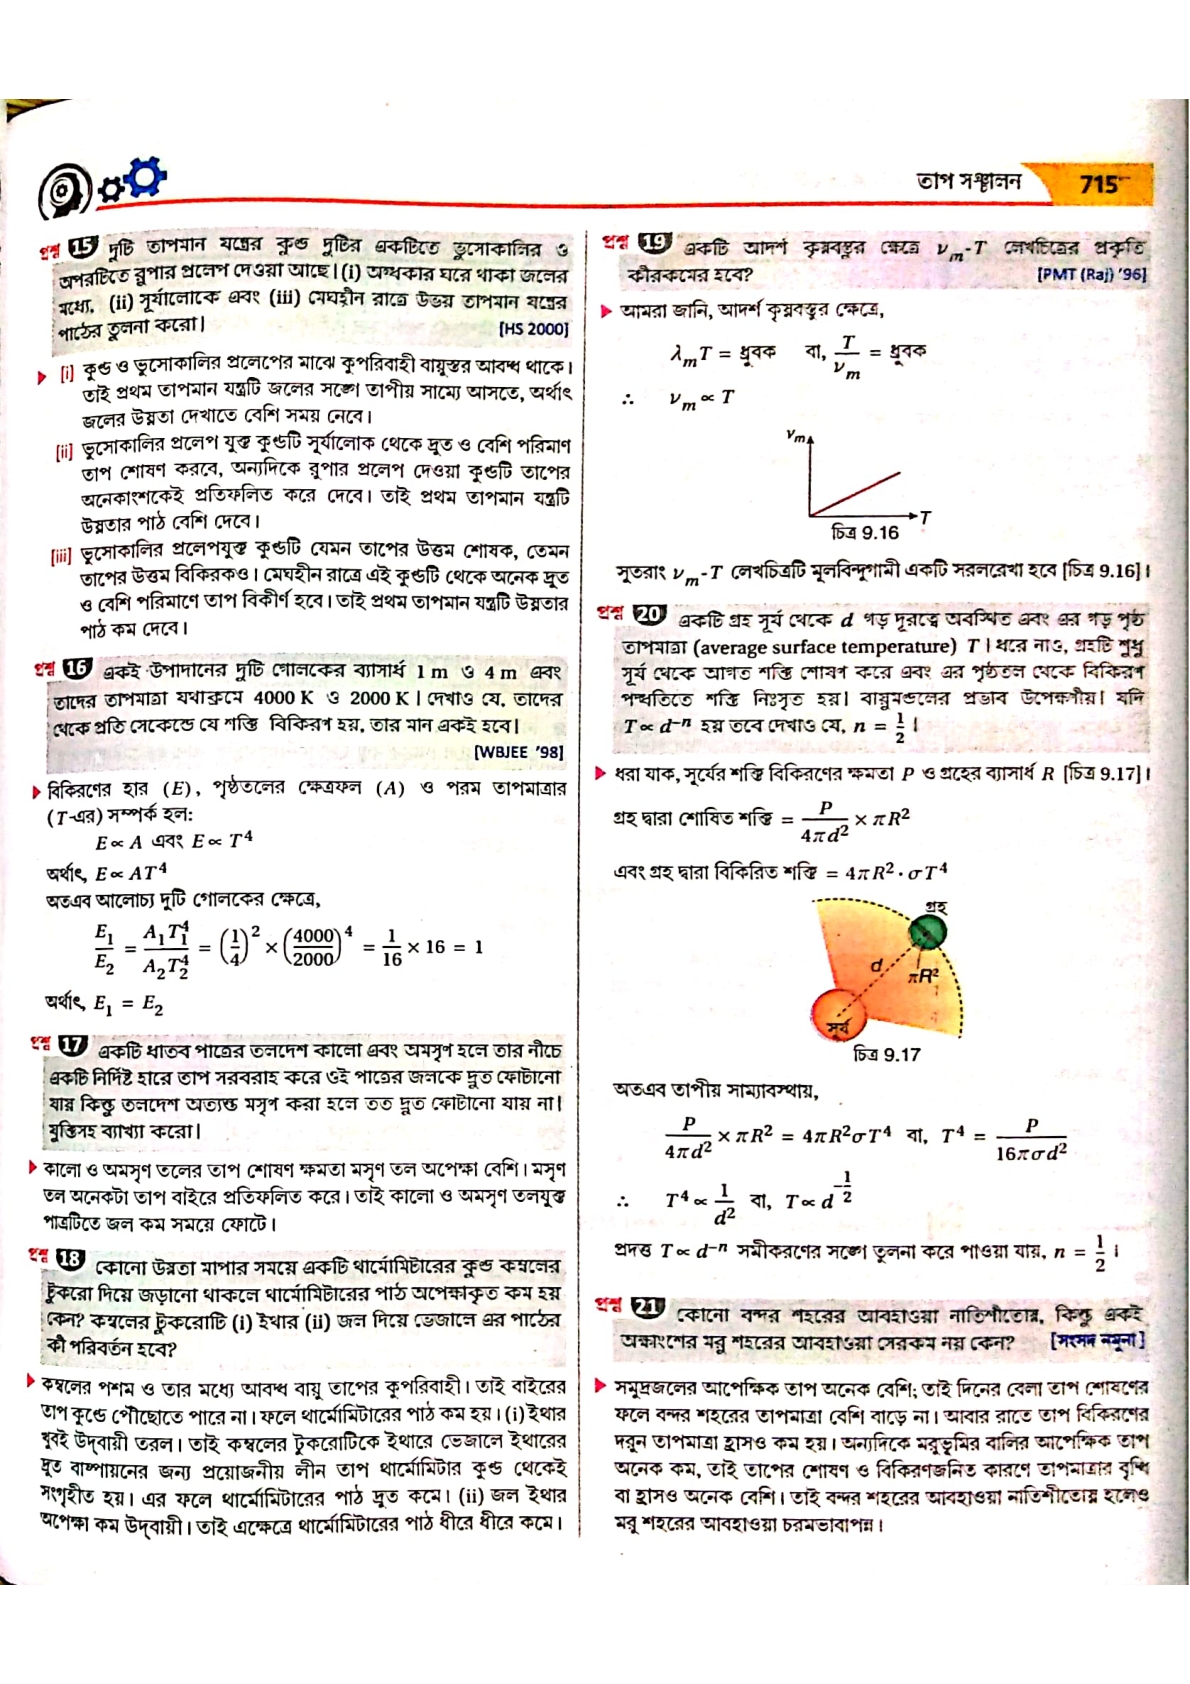 তাপ সঞ্চালন 715
প্রশ্ন 15 দুটি তাপমান যন্ত্রের কুণ্ড দুটির একটিতে ভুসোকালির ও
অপরটিতে রুপার প্রলেপ দেওয়া আছে। (i) অন্ধকার ঘরে থাকা জলের
মধ্যে, (ii) সূর্যালোকে এবং (iii) মেঘহীন রাত্রে উভয় তাপমান যন্ত্রের
পাঠের তুলনা করো। [HS 2000]
[i] কুণ্ড ও ভুসোকালির প্রলেপের মাঝে কুপরিবাহী বায়ুস্তর আবদ্ধ থাকে।
তাই প্রথম তাপমান যন্ত্রটি জলের সঙ্গে তাপীয় সাম্যে আসতে, অর্থাৎ
জলের উষ্ণতা দেখাতে বেশি সময় নেবে।
[ii] ভুসোকালির প্রলেপ যুক্ত কুণ্ডটি সূর্যালোক থেকে দ্রুত ও বেশি পরিমাণ
তাপ শোষণ করবে, অন্যদিকে রুপার প্রলেপ দেওয়া কুণ্ডটি তাপের
অনেকাংশকেই প্রতিফলিত করে দেবে। তাই প্রথম তাপমান যন্ত্রটি
উষ্ণতার পাঠ বেশি দেবে।
[iii] ভুসোকালির প্রলেপযুক্ত কুণ্ডটি যেমন তাপের উত্তম শোষক, তেমন
তাপের উত্তম বিকিরকও। মেঘহীন রাত্রে এই কুণ্ডটি থেকে অনেক দ্রুত
ও বেশি পরিমাণে তাপ বিকীর্ণ হবে। তাই প্রথম তাপমান যন্ত্রটি উষ্ণতার
পাঠ কম দেবে।
প্রশ্ন 16 একই উপাদানের দুটি গোলকের ব্যাসার্ধ 1 m ও 4 m এবং
তাদের তাপমাত্রা যথাক্রমে 4000 K ও 2000 K। দেখাও যে, তাদের
থেকে প্রতি সেকেন্ডে যে শক্তি বিকিরণ হয়, তার মান একই হবে।
[WBJEE '98]
বিকিরণের হার (E), পৃষ্ঠতলের ক্ষেত্রফল (A) ও পরম তাপমাত্রার
(T-এর) সম্পর্ক হল:
E ∝ A এবং E ∝ T⁴
অর্থাৎ, E ∝ AT⁴
অতএব আলোচ্য দুটি গোলকের ক্ষেত্রে,
E₁/E₂ = A₁T₁⁴/A₂T₂⁴ = (1/4)² × (4000/2000)⁴ = 1/16 × 16 = 1
অর্থাৎ, E₁ = E₂
প্রশ্ন 17 একটি ধাতব পাত্রের তলদেশ কালো এবং অমসৃণ হলে তার নীচে
একটি নির্দিষ্ট হারে তাপ সরবরাহ করে ওই পাত্রের জলকে দ্রুত ফোটানো
যায় কিন্তু তলদেশ অত্যন্ত মসৃণ করা হলে তত দ্রুত ফোটানো যায় না।
যুক্তিসহ ব্যাখ্যা করো।
কালো ও অমসৃণ তলের তাপ শোষণ ক্ষমতা মসৃণ তল অপেক্ষা বেশি। মসৃণ
তল অনেকটা তাপ বাইরে প্রতিফলিত করে। তাই কালো ও অমসৃণ তলযুক্ত
পাত্রটিতে জল কম সময়ে ফোটে।
প্রশ্ন 18 কোনো উষ্ণতা মাপার সময়ে একটি থার্মোমিটারের কুণ্ড কম্বলের
টুকরো দিয়ে জড়ানো থাকলে থার্মোমিটারের পাঠ অপেক্ষাকৃত কম হয়
কেন? কম্বলের টুকরোটি (i) ইথার (ii) জল দিয়ে ভেজালে এর পাঠের
কী পরিবর্তন হবে?
কম্বলের পশম ও তার মধ্যে আবদ্ধ বায়ু তাপের কুপরিবাহী। তাই বাইরের
তাপ কুণ্ডে পৌঁছোতে পারে না। ফলে থার্মোমিটারের পাঠ কম হয়। (i) ইথার
খুবই উদ্‌বায়ী তরল। তাই কম্বলের টুকরোটিকে ইথারে ভেজালে ইথারের
দ্রুত বাষ্পায়নের জন্য প্রয়োজনীয় লীন তাপ থার্মোমিটার কুণ্ড থেকেই
সংগৃহীত হয়। এর ফলে থার্মোমিটারের পাঠ দ্রুত কমে। (ii) জল ইথার
অপেক্ষা কম উদ্‌বায়ী। তাই এক্ষেত্রে থার্মোমিটারের পাঠ ধীরে ধীরে কমে।
প্রশ্ন 19 একটি আদর্শ কৃষ্ণবস্তুর ক্ষেত্রে νₘ-T লেখচিত্রের প্রকৃতি
কীরকমের হবে? [PMT (Raj) '96]
আমরা জানি, আদর্শ কৃষ্ণবস্তুর ক্ষেত্রে,
λₘT = ধ্রুবক বা, T/νₘ = ধ্রুবক
∴ νₘ ∝ T
νₘ
T
চিত্র 9.16
সুতরাং νₘ-T লেখচিত্রটি মূলবিন্দুগামী একটি সরলরেখা হবে [চিত্র 9.16]।
প্রশ্ন 20 একটি গ্রহ সূর্য থেকে d গড় দূরত্বে অবস্থিত এবং এর গড় পৃষ্ঠ
তাপমাত্রা (average surface temperature) T। ধরে নাও, গ্রহটি শুধু
সূর্য থেকে আগত শক্তি শোষণ করে এবং এর পৃষ্ঠতল থেকে বিকিরণ
পদ্ধতিতে শক্তি নিঃসৃত হয়। বায়ুমণ্ডলের প্রভাব উপেক্ষণীয়। যদি
T ∝ d⁻ⁿ হয় তবে দেখাও যে, n = 1/2।
ধরা যাক, সূর্যের শক্তি বিকিরণের ক্ষমতা P ও গ্রহের ব্যাসার্ধ R [চিত্র 9.17]।
গ্রহ দ্বারা শোষিত শক্তি = P/4πd² × πR²
এবং গ্রহ দ্বারা বিকিরিত শক্তি = 4πR² · σT⁴
গ্রহ
d
πR²
সূর্য
চিত্র 9.17
অতএব তাপীয় সাম্যাবস্থায়,
P/4πd² × πR² = 4πR²σT⁴ বা, T⁴ = P/16πσd²
∴ T⁴ ∝ 1/d² বা, T ∝ d^(-1/2)
প্রদত্ত T ∝ d⁻ⁿ সমীকরণের সঙ্গে তুলনা করে পাওয়া যায়, n = 1/2।
প্রশ্ন 21 কোনো বন্দর শহরের আবহাওয়া নাতিশীতোষ্ণ, কিন্তু একই
অক্ষাংশের মরু শহরের আবহাওয়া সেরকম নয় কেন? [সংসদ নমুনা]
সমুদ্রজলের আপেক্ষিক তাপ অনেক বেশি; তাই দিনের বেলা তাপ শোষণের
ফলে বন্দর শহরের তাপমাত্রা বেশি বাড়ে না। আবার রাতে তাপ বিকিরণের
দরুন তাপমাত্রা হ্রাসও কম হয়। অন্যদিকে মরুভূমির বালির আপেক্ষিক তাপ
অনেক কম, তাই তাপের শোষণ ও বিকিরণজনিত কারণে তাপমাত্রার বৃদ্ধি
বা হ্রাসও অনেক বেশি। তাই বন্দর শহরের আবহাওয়া নাতিশীতোষ্ণ হলেও
মরু শহরের আবহাওয়া চরমভাবাপন্ন।